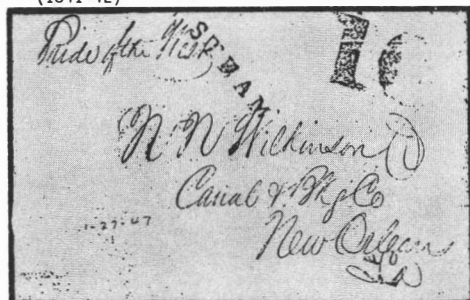 (1841-42)
Pride of the West
STEAM
10
N N Wilkinson
Canal & Bkg Co
New Orleans
La
1-27-47